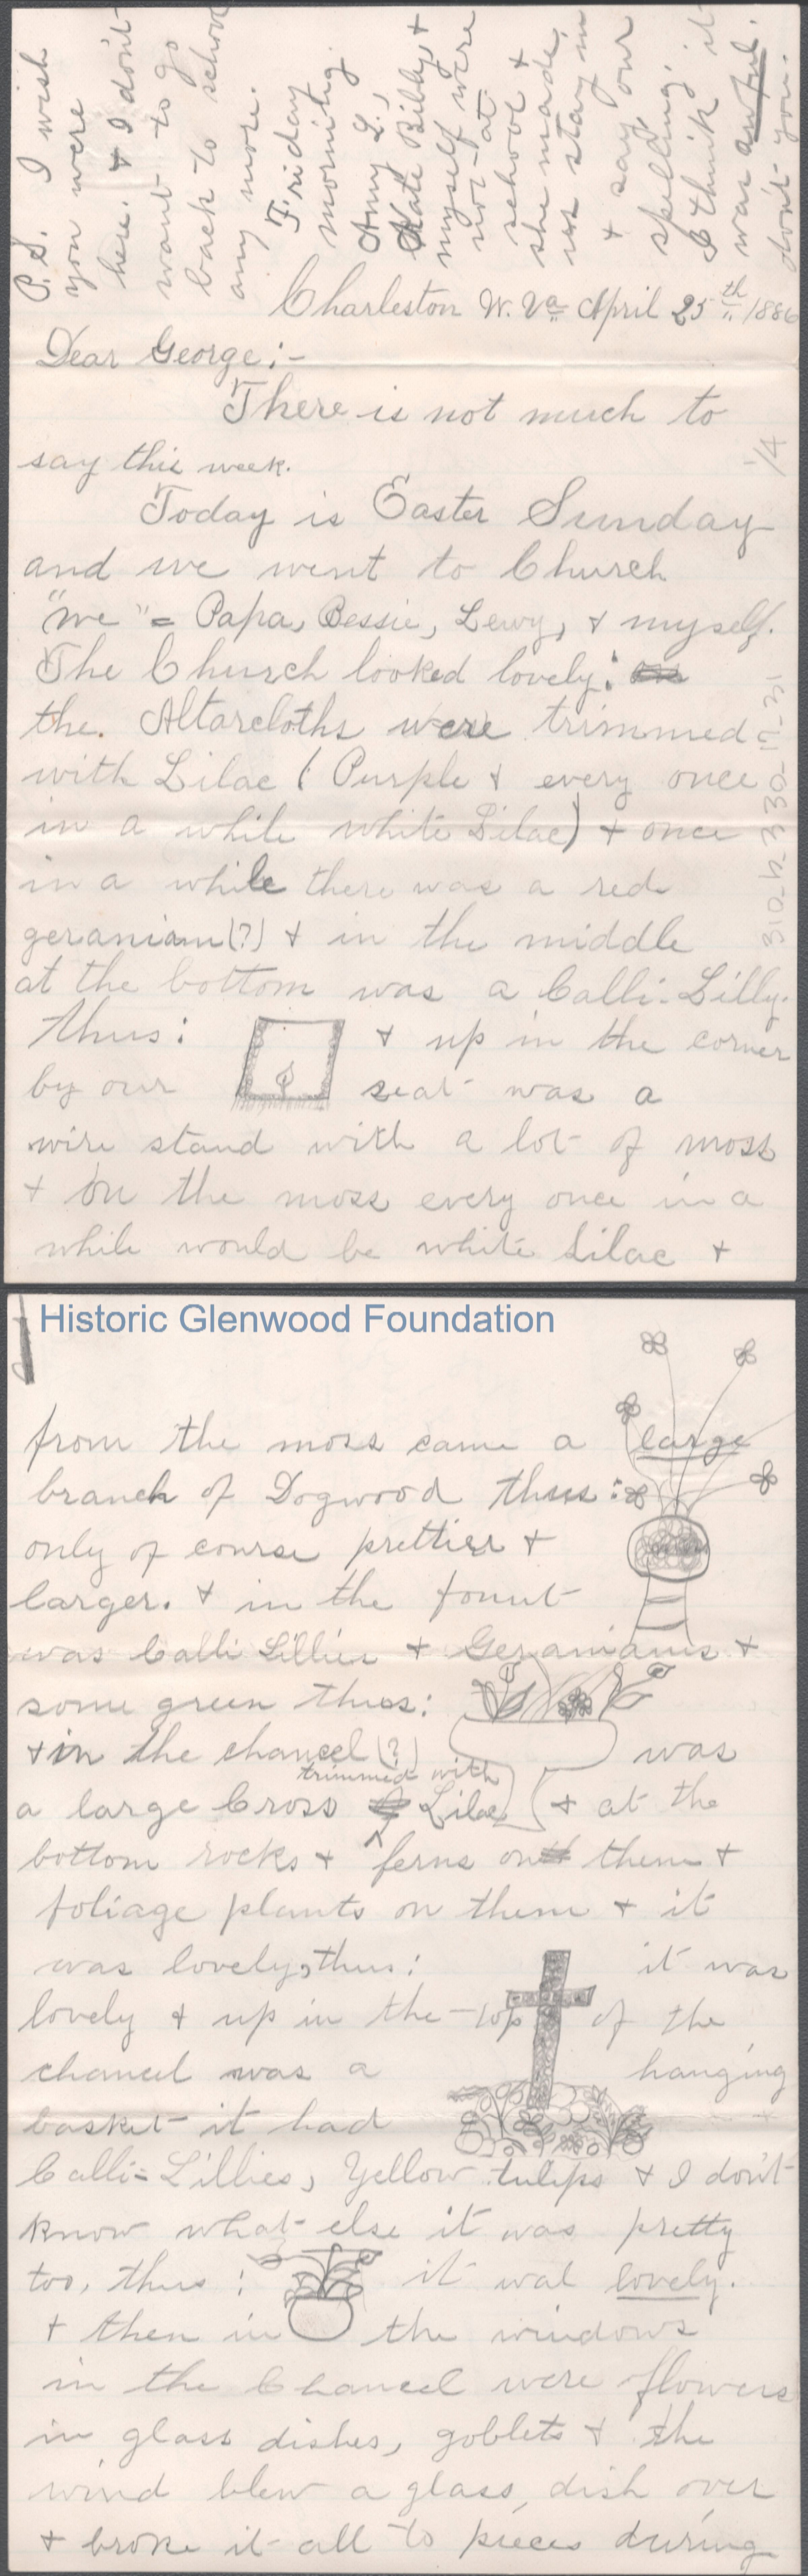 P.S. I wish
you were
here. & I don't
want to go
back to school
any more.
Friday
morning
Amy L.,
Kate Bibby, &
myself were
not at
school &
she made
us stay in
& say our
spelling.
I think it
was awful.
don't you.
Charleston W. Va April 25th 1886
Dear George:-
There is not much to
say this week.
Today is Easter Sunday
and we went to Church
"we" = Papa, Bessie, Lewy, & myself.
The Church looked lovely:
the. Altarcloths were trimmed
with Lilac ( Purple & every once
in a while white Lilac) & once
in a while there was a red
geraniam(?) & in the middle
at the bottom was a Calli-Lilly.
thus: & up in the corner
by our seat was a
wire stand with a lot of moss
& on the moss every once in a
while would be white Lilac &
Historic Glenwood Foundation
from the moss came a large
branch of Dogwood thus:
only of course prettier &
larger. & in the fount
was Calli Lillies & Geraniams &
some green thus:
& in the chancel (?) was
trimmed with
a large Cross Lilac & at the
bottom rocks & ferns on them &
foliage plants on them & it
was lovely, thus: it was
lovely & up in the top of the
chancel was a hanging
basket it had
Calli=Lillies, Yellow tulips & I don't
know what else it was pretty
too, thus: it wal lovely.
& then in the windows
in the Chancel were flowers
in glass dishes, goblets & the
wind blew a glass dish over
& broke it all to pieces during